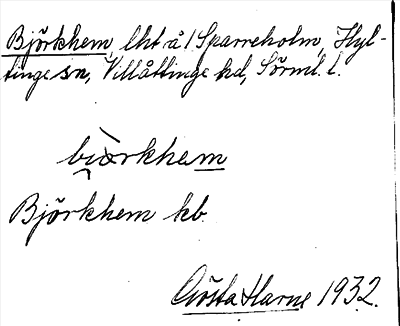 Björkhem, lht å / Sparreholm, Hyl-
tinge sn, Villåttinge hd, Sörml. l.
bjö̀rkhem
Björkhem kb.
Gösta Harne 1932.